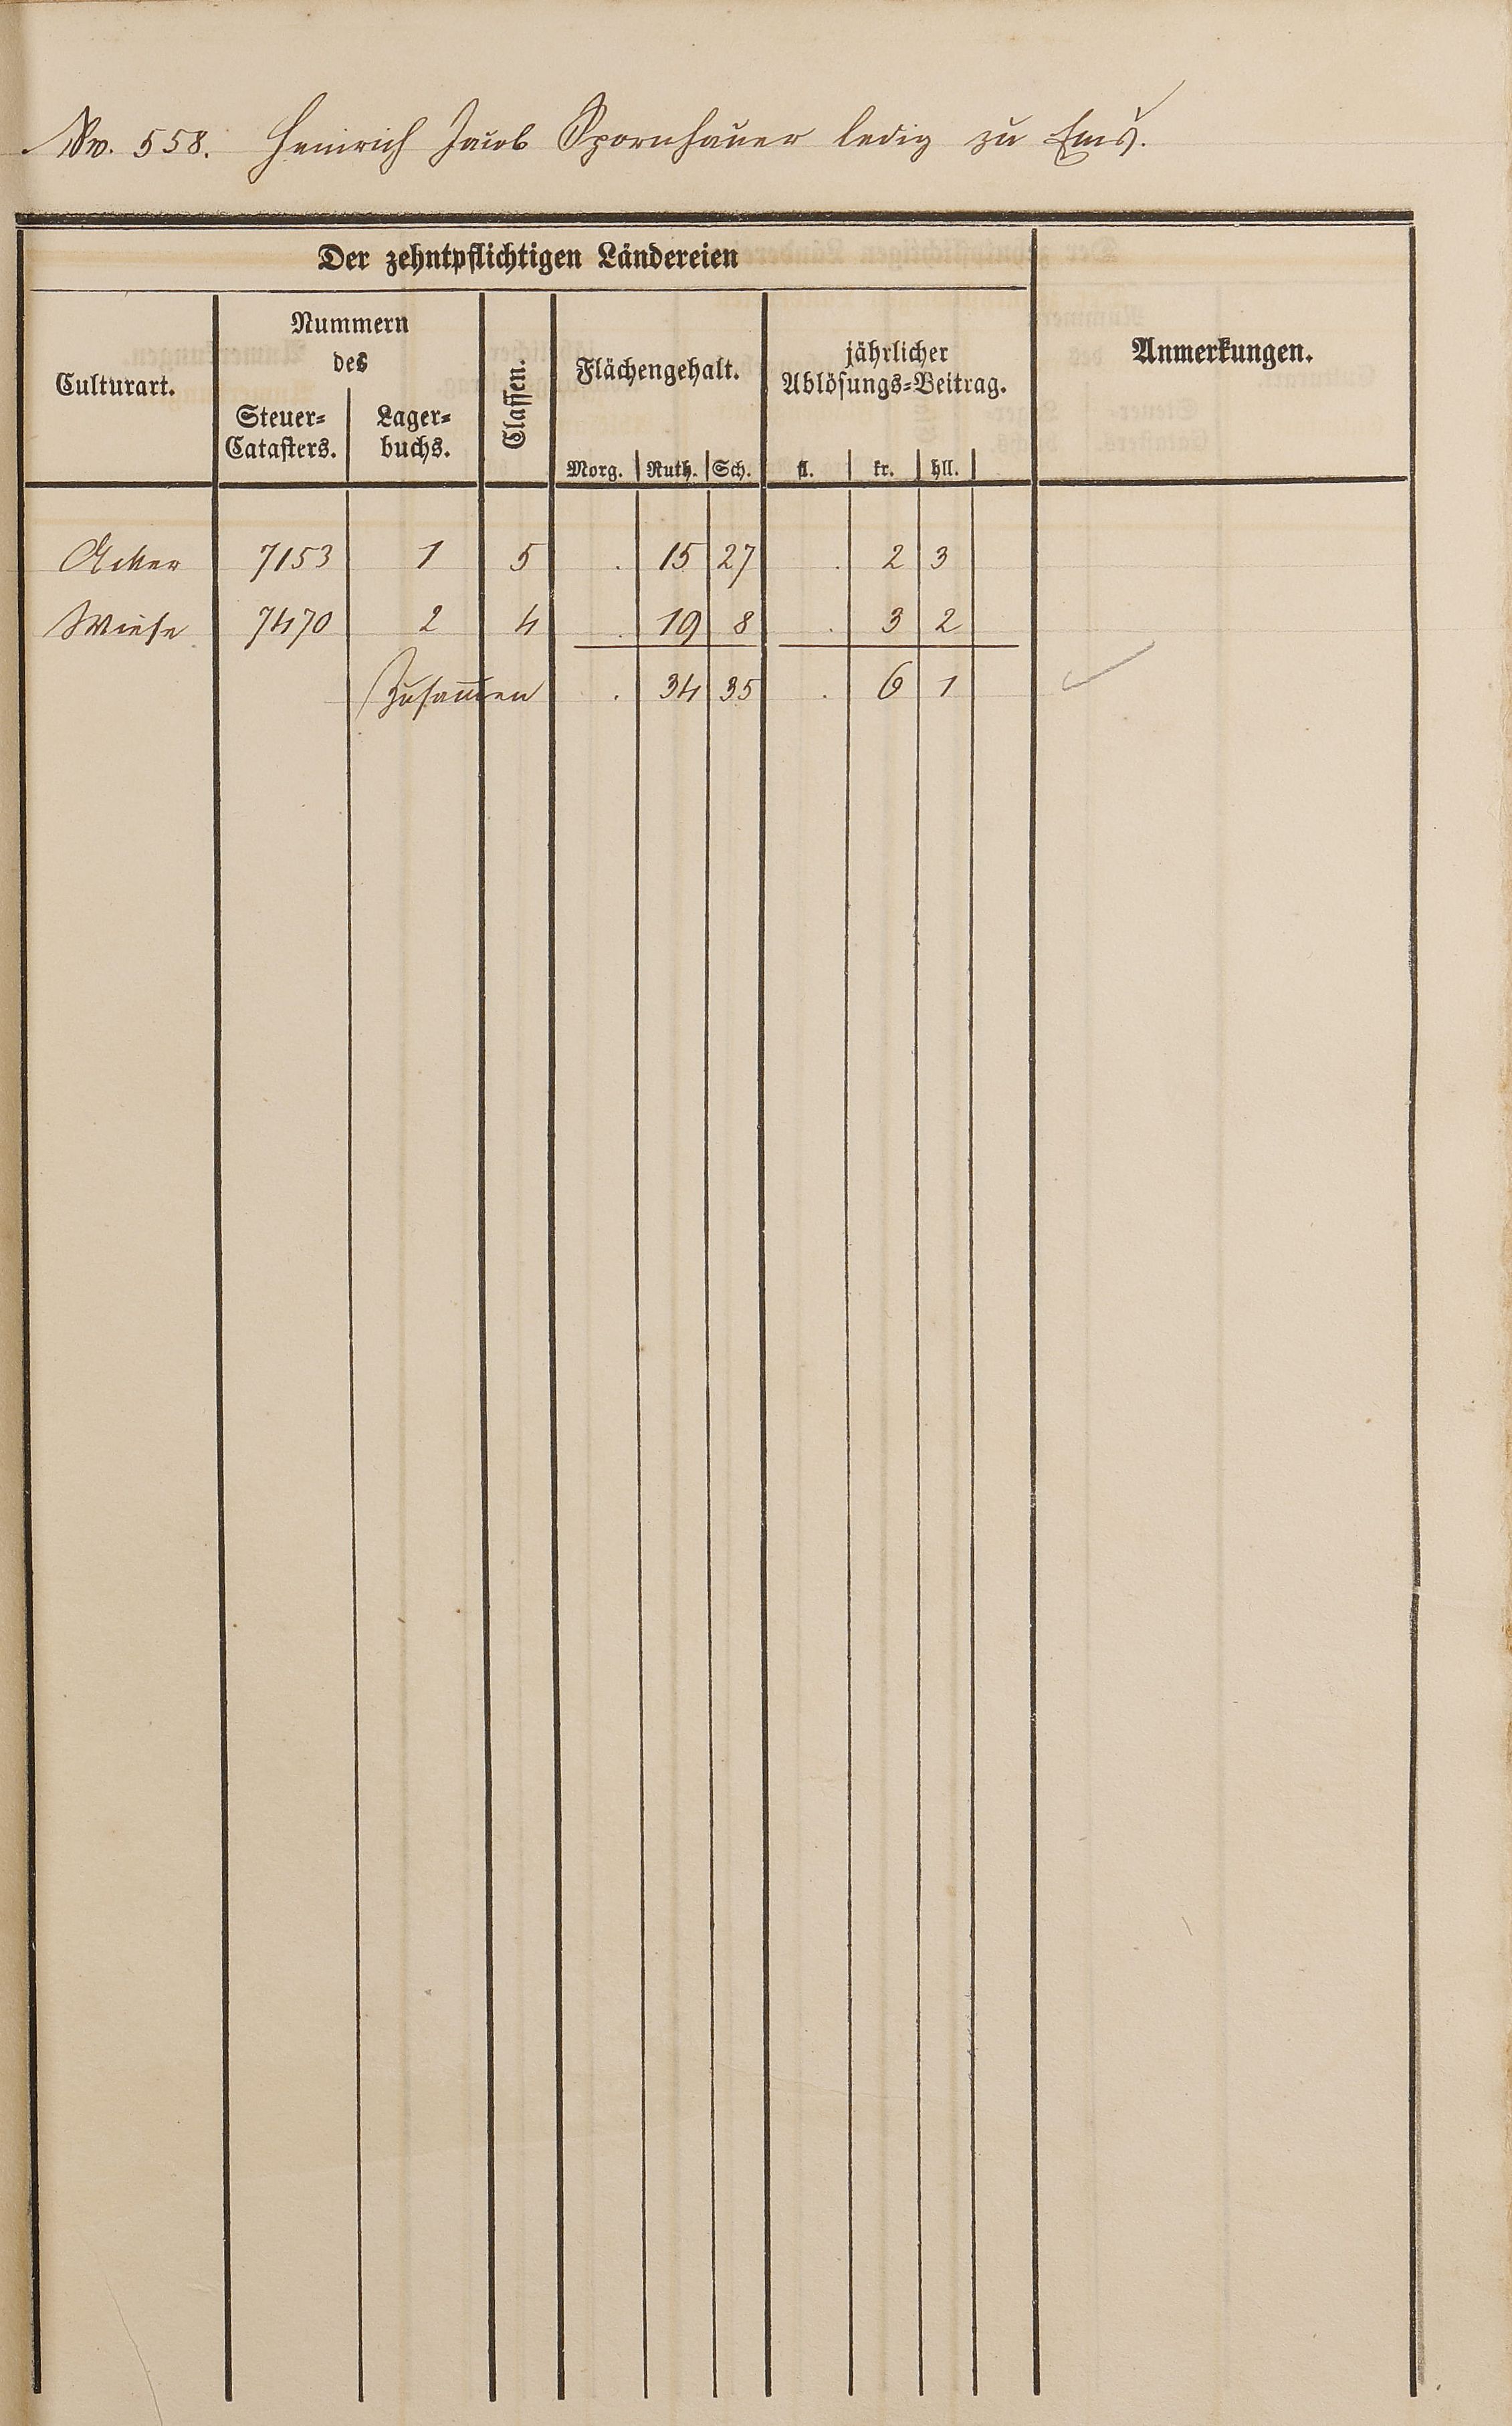 No. 558. Heinrich Jacob Spornhauer ledig zu Ems.
Der zehntpflichtigen Ländereien
Anmerkungen.
Culturart.
Nummern
des
Steuer-
Catasters.
Lager-
buchs.
Classen.
Flächengehalt.
Morg. Ruth. Sch.
jährlicher
Ablösungs-Beitrag.
fl. kr. hll.
Acker 7153 1 5 . 15 27 . 2 3
Wiese 7470 2 4 . 19 8 . 3 2
Zusammen . 34 35 . 6 1